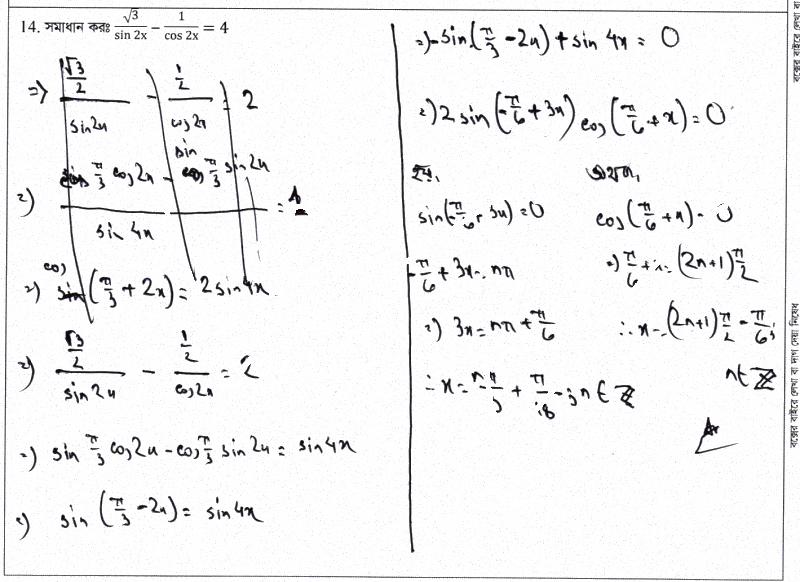 14. সমাধান করঃ √3/sin 2x − 1/cos 2x = 4
=> (√3/2)/sin2x − (1/2)/cos2x = 2
=) (sin π/3 cos2x − cos π/3 sin2x)/sin 4x =
=) cos(π/3 + 2x) = 2sin4x
=) (√3/2)/sin2x − (1/2)/cos2x = 2
=) sin π/3 cos2x − cos π/3 sin2x = sin4x
=) sin(π/3 − 2x) = sin4x
=) −sin(π/3 − 2x) + sin 4x = 0
=) 2 sin(−π/6 + 3x) cos(π/6 + x) = 0
হয়, অথবা,
sin(−π/6 + 3x) = 0 cos(π/6 + x) = 0
−π/6 + 3x = nπ =) π/6 + x = (2n+1)π/2
=) 3x = nπ + π/6 ∴ x = (2n+1)π/2 − π/6;
∴ x = nπ/3 + π/18 ; n ∈ ℤ n ∈ ℤ
বক্সের বাইরে লেখা বা দাগ দেয়া নিষেধ